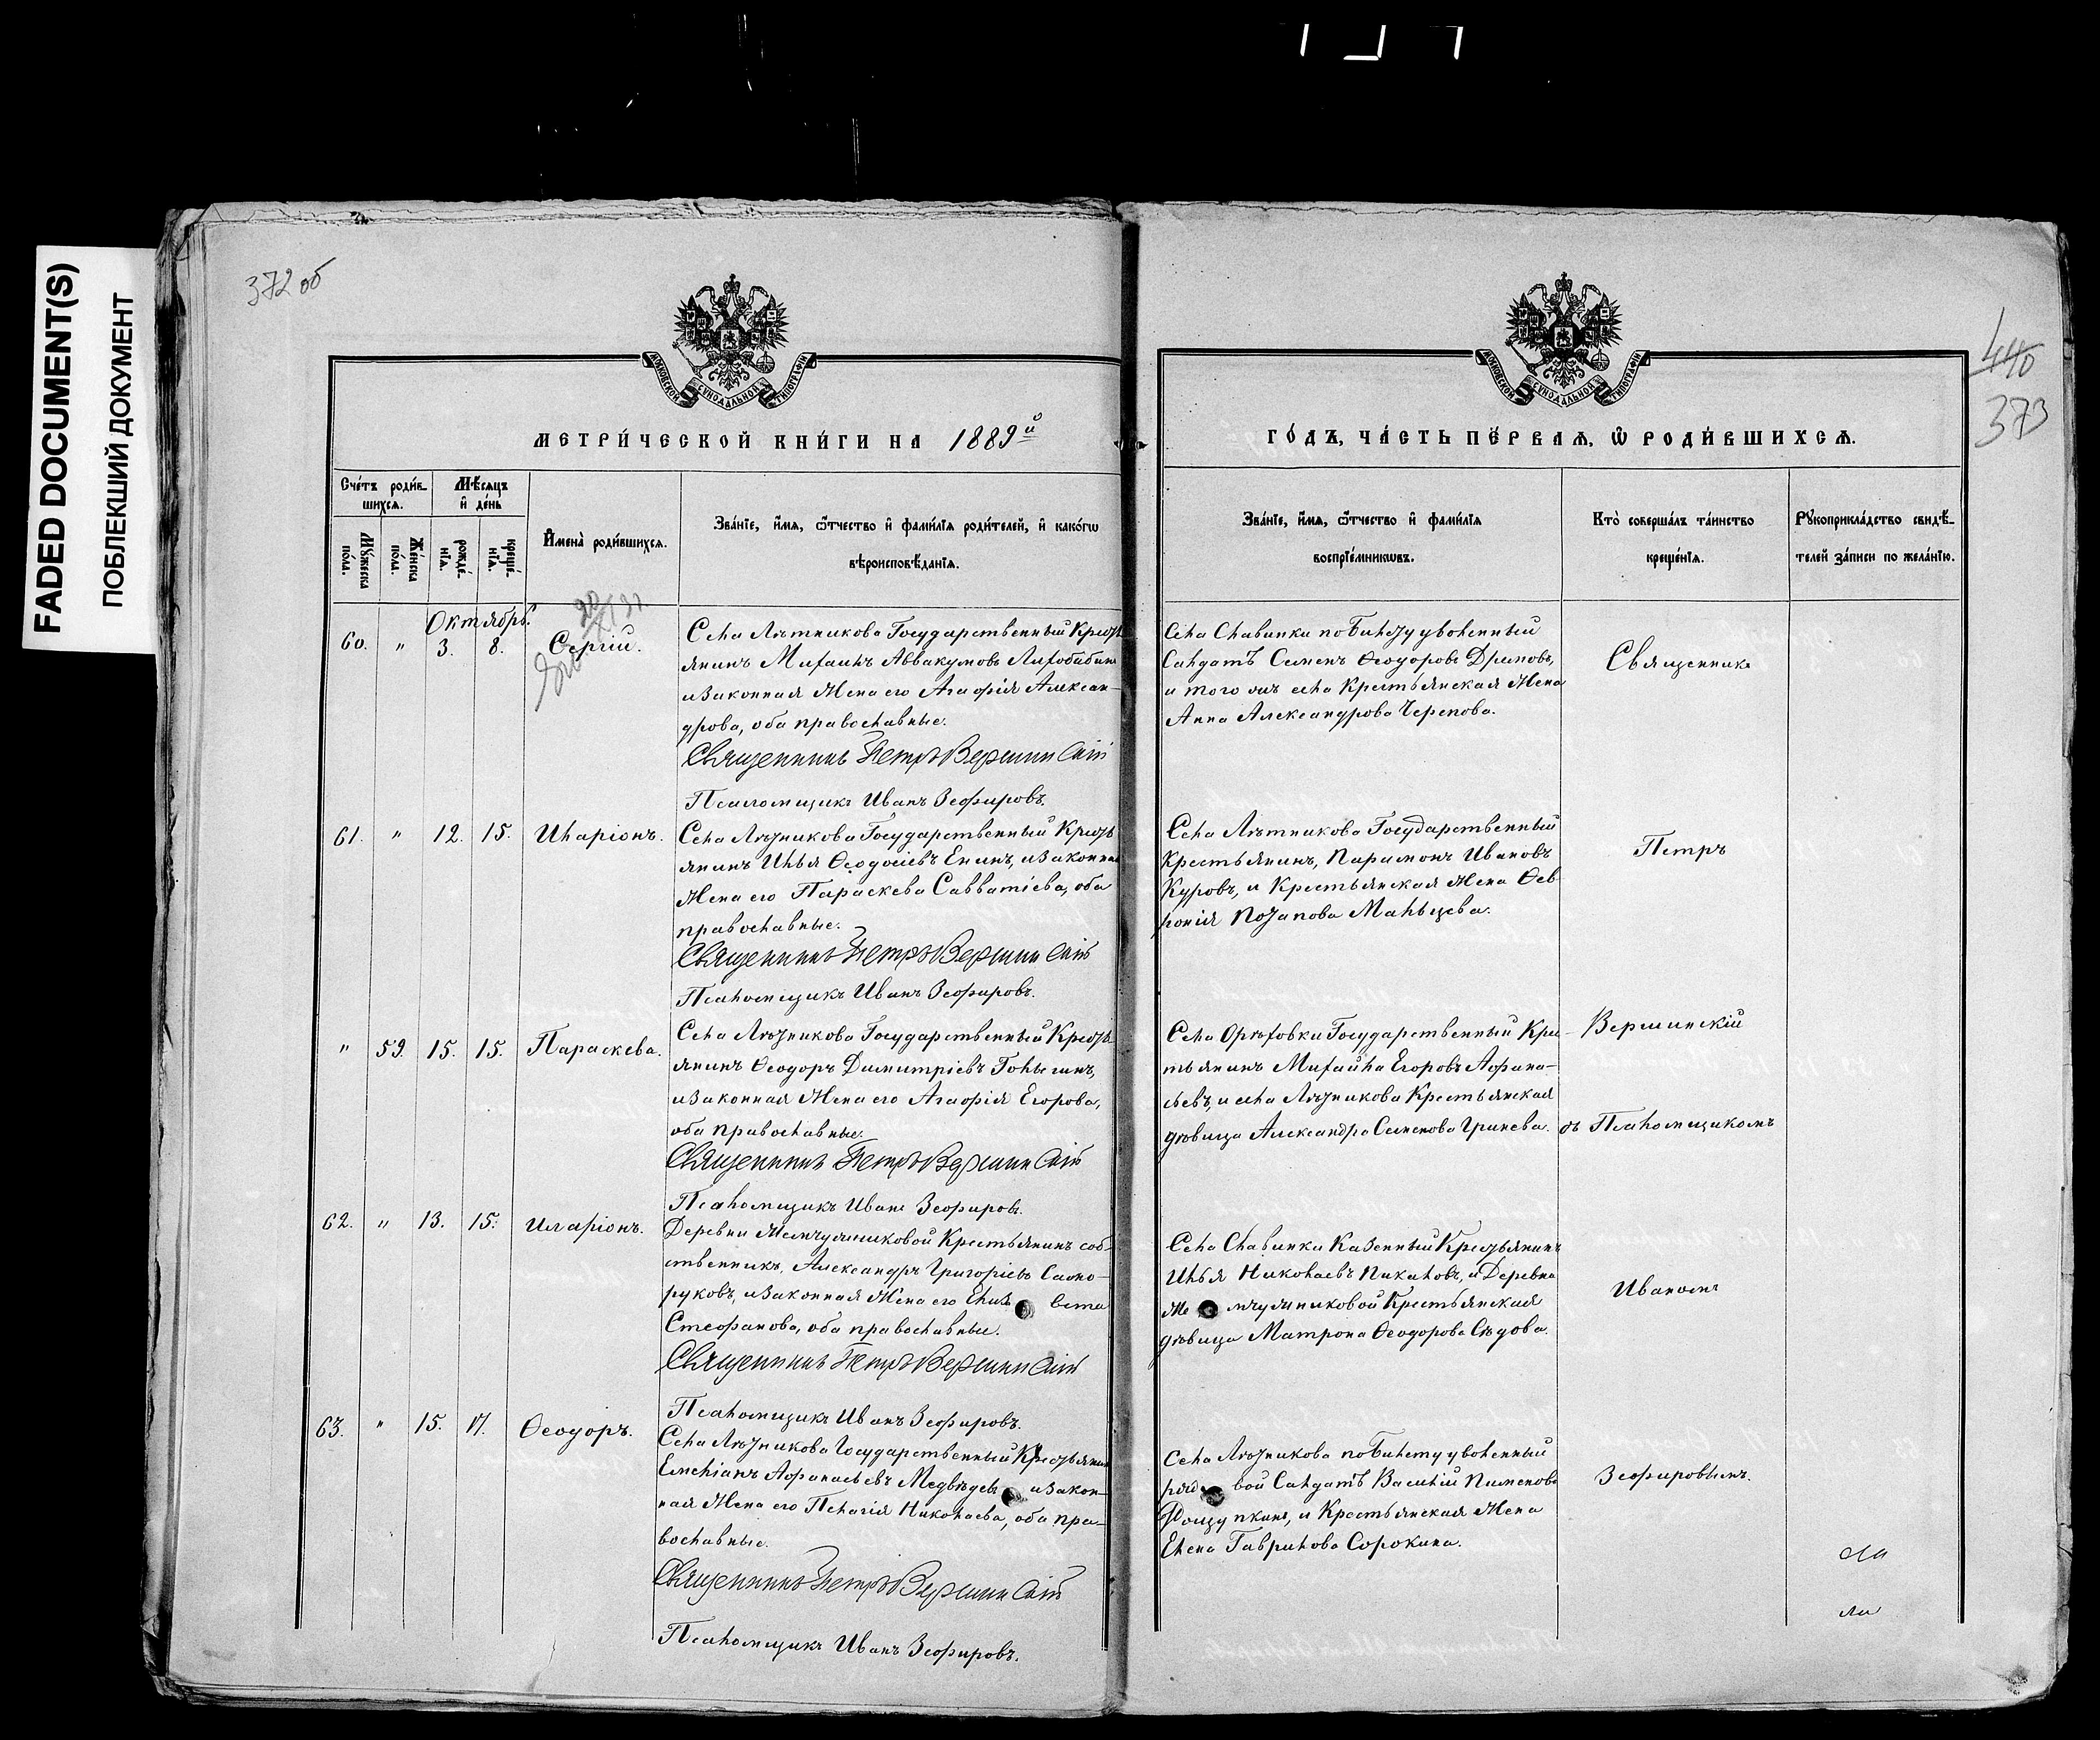 FADED DOCUMENT(S)
ПОБЛЕКШИЙ ДОКУМЕНТ
372 об
МОСКОВСКОЙ СѴНОДАЛЬНОЙ ТИПОГРАФІИ
МЕТРИ́ЧЕСКОЙ КНИ́ГИ НА 1889й
Сче́тъ роди́в-
шихсѧ.
Мѣ́сѧцъ
и҆ де́нь
Мꙋ́жеска
по́ла.
Же́нска
по́ла.
рожде́-
нїѧ.
креще́-
нїѧ.
И҆мена̀ роди́вшихсѧ.
Зва́нїе, и҆́мѧ, ѻ҆́тчество и҆ фами́лїѧ роди́телей, и҆ како́гѡ
вѣроисповѣ́данїѧ.
Октябрь.
60. " 3. 8. Сергій.
Села Лѣтникова Государственный Кресть
янинъ Михаилъ Аввакумовъ Лихобабинъ
и законная Жена его Агафія Алексан-
дрова, оба православные.
Священникъ Петръ Вершинскій
Псаломщикъ Иванъ Зефировъ.
61. " 12. 15. Иларіонъ.
Села Лѣтникова Государственный Кресть
янинъ Илья Ѳеодосіевъ Енинъ, и законная
Жена его Параскева Савватіева, оба
православные.
Священникъ Петръ Вершинскій
Псаломщикъ Иванъ Зефировъ.
" 59. 15. 15. Параскева.
Села Лѣтникова Государственный Кресть
янинъ Ѳеодоръ Димитріевъ
и законная Жена его Агафія Егорова,
оба православные.
Священникъ Петръ Вершинскій
Псаломщикъ Иванъ Зефировъ.
62. " 13. 15. Иларіонъ.
Деревни Жемчужниковой Крестьянинъ соб-
ственникъ, Александръ Григоріевъ Сухо-
руковъ, и законная Жена его Елиза вета
Стефанова, оба православные.
Священникъ Петръ Вершинскій
Псаломщикъ Иванъ Зефировъ.
63. " 15. 17. Ѳеодоръ.
Села Лѣтникова Государственный Крестьянинъ
Емеліанъ Афанасьевъ Медвѣдевъ и закон-
ная Жена его Пелагія Николаева, оба пра-
вославные.
Священникъ Петръ Вершинскій
Псаломщикъ Иванъ Зефировъ.
440
373
МОСКОВСКОЙ СѴНОДАЛЬНОЙ ТИПОГРАФІИ
ГО́ДЪ, ЧА́СТЬ ПЕ́РВАѦ, Ѡ҆ РОДИ́ВШИХСѦ.
Зва́нїе, и҆́мѧ, ѻ҆́тчество и҆ фами́лїѧ
воспрїе́мникѡвъ.
Кто̀ соверша́лъ та́инство
креще́нїѧ.
Рꙋкоприкла́дство свидѣ́-
телей за́писи по жела́нїю.
Села Славинки по билету уволенный
Салдатъ Семенъ Ѳеодоровъ Дрыновъ,
и того же села Крестьянская Жена
Анна Александрова Черепова.
Священникъ
Села Лѣтникова Государственный
Крестьянинъ, Парамонъ Ивановъ
Куровъ, и Крестьянская Жена Ѳев-
ронія Потапова Мальцева.
Петръ
Села Орѣховки Государственный Крес-
тьянинъ Михаила Егоровъ Афана-
сьевъ, и села Лѣтникова Крестьянская
дѣвица Александра Семенова Гринева.
Вершинскій
съ Псаломщикомъ
Села Славинки Казенный Крестьянинъ
Илья Николаевъ Пикаловъ, и Деревни
Же мчужниковой Крестьянская
дѣвица Матрона Ѳеодорова Сѣдова.
Иваномъ
Села Лѣтникова по билету уволенный
рядо вой Салдатъ Василій Пименовъ
и Крестьянская Жена
Елена Гаврилова Сорокина.
Зефировымъ.